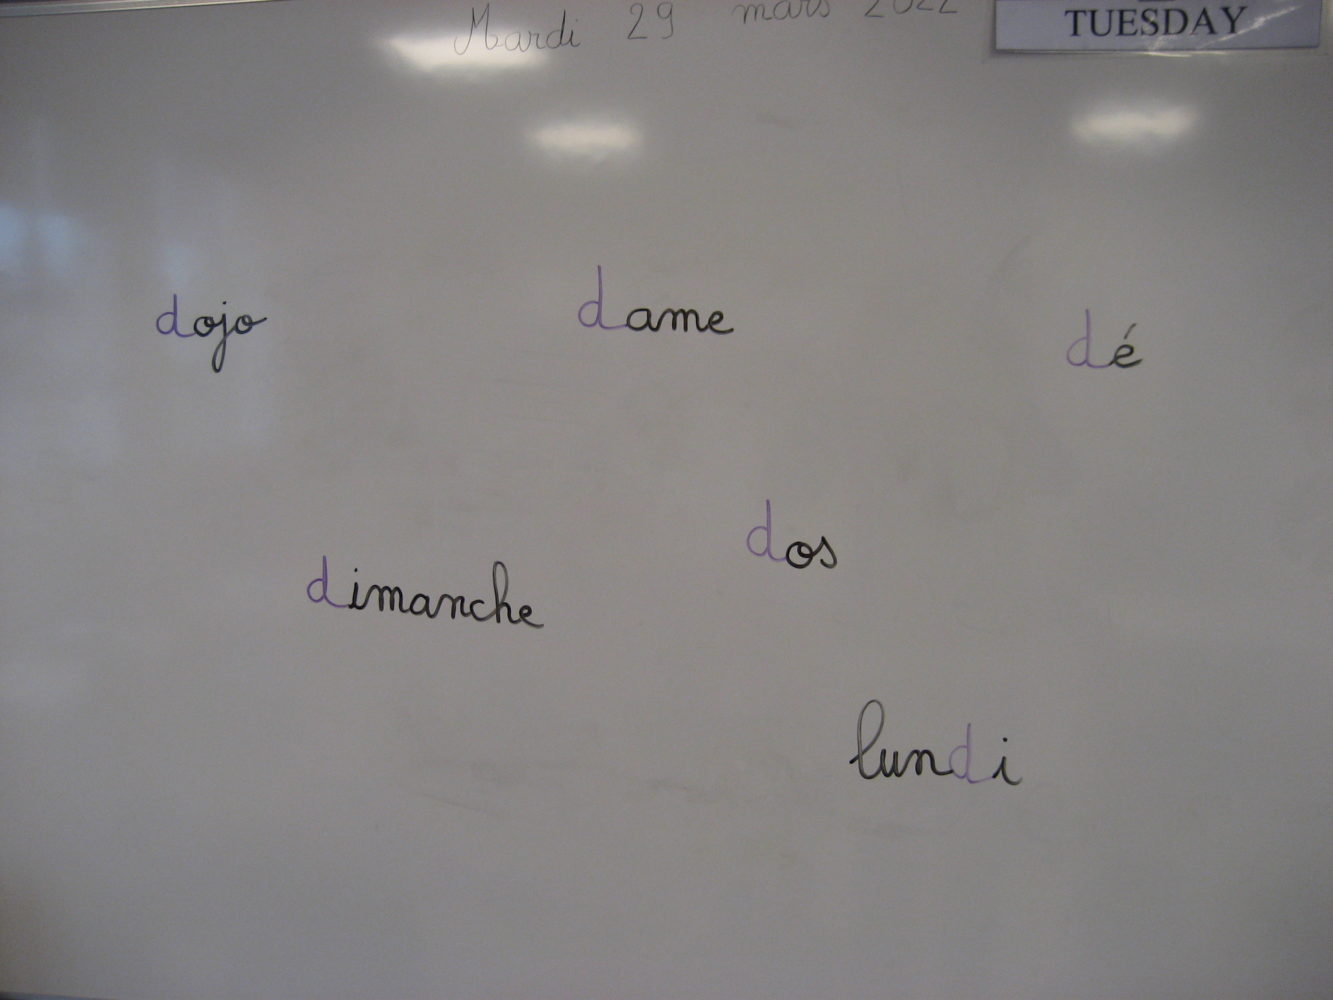 Mardi 29 mars 2022
TUESDAY
dojo
dame
dé
dos
dimanche
lundi